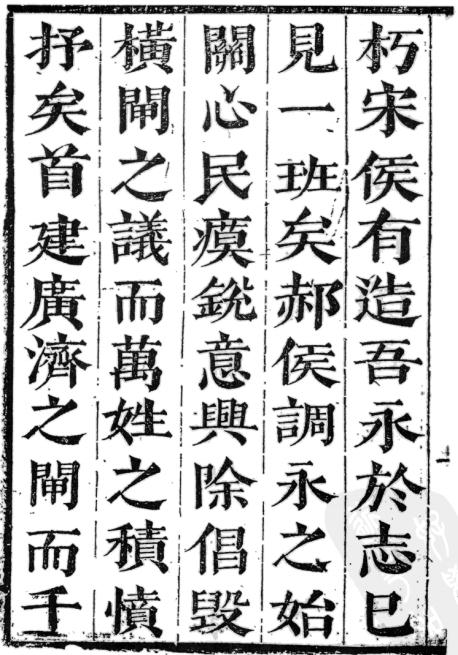 朽宋侯有造吾永於志巳
見一班矣郝侯調永之始
關心民瘼銳意興除倡毀
橫閘之議而萬姓之積憤
抒矣首建廣濟之閘而千